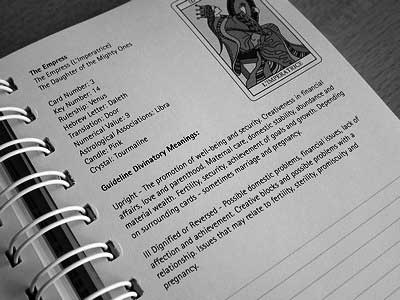 L'IMPERATRICE
The Empress
The Empress (L'Imperatrice)
The Daughter of the Mighty Ones
Card Number: 3
Key Number: 14
Rulership: Venus
Hebrew Letter: Daleth
Translation: Door
Numerical Value: 9
Astrological Associations: Libra
Candle: Pink
Crystal: Tourmaline
Guideline Divinatory Meanings:
Upright – The promotion of well-being and security. Creativeness in financial
affairs, love and parenthood. Maternal care, domestic stability, abundance and
material wealth. Fertility, security, achievement of goals and growth. Depending
on surrounding cards – sometimes marriage and pregnancy.
Ill Dignified or Reversed – Possible domestic problems, financial issues, lack of
affection and achievement. Creative blocks and possible problems with a
relationship. Issues that may relate to fertility, sterility, promiscuity and
pregnancy.